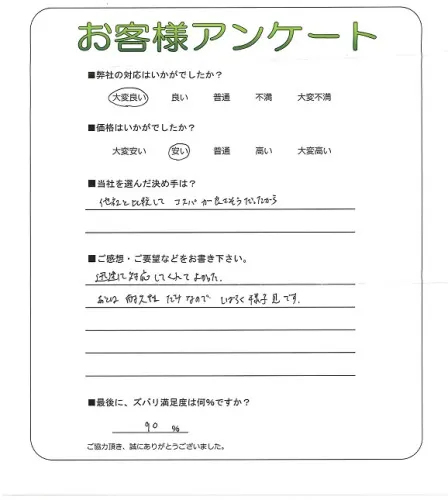 お客様アンケート
■弊社の対応はいかがでしたか？
大変良い 良い 普通 不満 大変不満
■価格はいかがでしたか？
大変安い 安い 普通 高い 大変高い
■当社を選んだ決め手は？
他社と比較して コスパが良さそうだったから
■ご感想・ご要望などをお書き下さい。
迅速に対応してくれてよかった.
あとは 耐久性 だけなので しばらく様子見です.
■最後に、ズバリ満足度は何%ですか？
90 %
ご協力頂き、誠にありがとうございました。